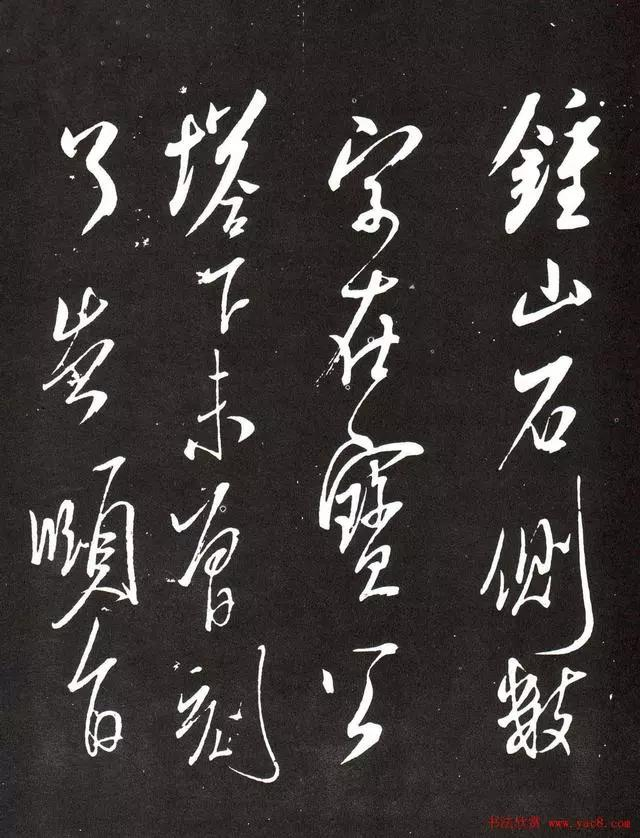 鍾山石側數
字在寶公
塔下未曾刻
頤
书法欣赏 www.yac8.com